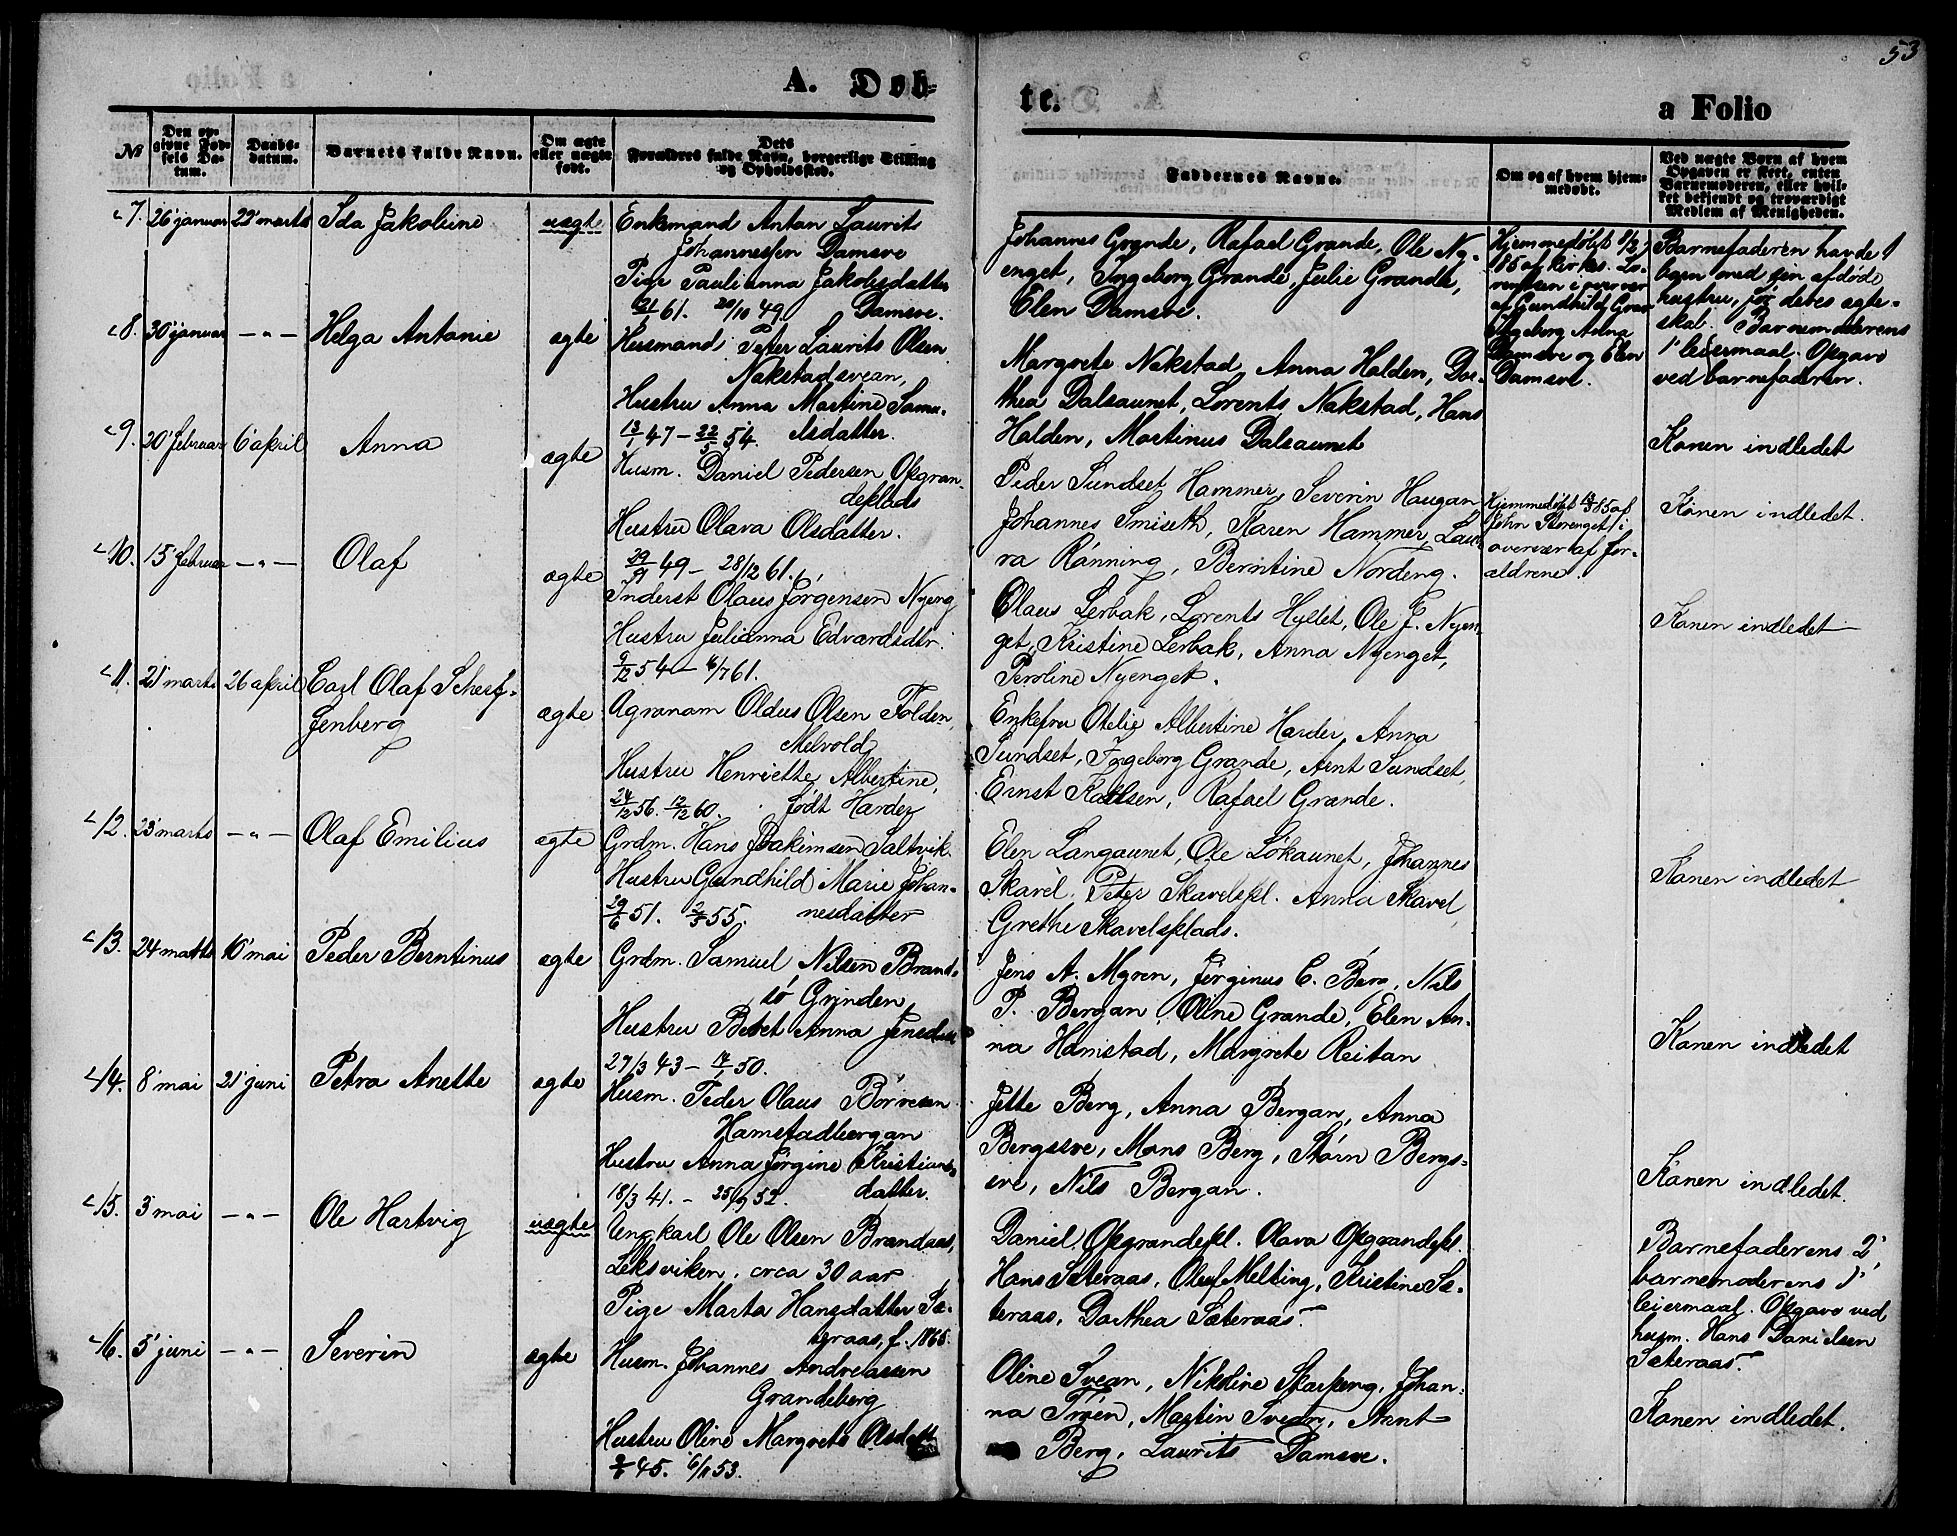 53
A. Døb-
te.
a Folio
No
Den op-
givne Fød-
sels Da-
tum.
Daabs-
datum.
Barnets fulde Navn.
Om ægte
eller uægte
født.
Dets
Forældres fulde Navn, borgerlige Stilling
og Opholdssted.
Faddernes Navne.
Om og af hvem hjem-
medøbt.
Ved uægte Børn af hvem
Opgaven er skeet, enten
Barnemoderen, eller hvil-
ket bekjendt og troværdigt
Medlem af Menigheden.
7. 26' januar 22' marts Ida Jakobine uægte
Enkemand Antan Laurits
Johannessen Damsve
Pige Paulianna Jakobsdatter
61. 20/10 49. Damsve.
Johannes Grande, Rafael Grande, Ole Ny-
enget, Ingeborg Grande, Julie Grande,
Elen Damsve.
Hjemmedøbt
85 af kirkes. Lo-
rentsen i overvær
af Gundhild Gran
Ingeborg Anna
Damsve og Elen
Damsve.
Barnefaderen havde 1
barn med sin afdøde
hustru, før deres ægte-
skab. Barnemoderens
1' leiermaal. Opgave
ved barnefaderen.
8. 30' januar -"- Helga Antonie ægte
Husmand Peter Laurits Olsen
Nakstadsvean,
Hustru Anna Martine Samu-
13/1 47 - 22/5 54. elsdatter.
Margrete Nakstad, Anna Halden, Dor-
thea Dalsaunet, Lorents Nakstad, Hans
Halden, Martinus Dalsaunet
Konen indledet
9. 20' februar 6' april Anna ægte
Husm. Daniel Pedersen Opgran-
deplads
Hustru Olava Olsdatter.
29/9 49 - 28/12 61.
Peder Sundset Hammer, Severin Haugan
Johannes Smiseth, Karen Hammer, Lau-
ra Rønning, Berntine Nordeng.
Hjemmedøbt 85 af
John Storenget i
overvær af for-
ældrene.
Konen indledet.
10. 15' februar -"- Olaf ægte
Inderst Olaus Jørgensen Nyeng
Hustru Julianna Edvardsdtr.
9/12 54 - 6/7 61.
Olaus Lerbak, Lorents Hyllet, Ole J. Nyen-
get, Kristine Lerbak, Anna Nyenget,
Peroline Nyenget.
Konen indledet
11. 21' marts 26 april Carl Olaf Scherf-
fenberg ægte
Agronom Oldus Olsen Folden,
Melvold,
Hustru Henriette Albertine,
24/12 56. 12/2 60. født Harder
Enkefru Otelie Albertine Harder, Anna
Sundset, Ingeborg Grande, Arnt Sundset,
Ernst Karlsen, Rafael Grande.
12. 23' marts -"- Olaf Emilius ægte
Grdm. Hans Joakimsen Saltvik.
Hustru Gundhild Marie Johan-
29/6 51. 2/3 55. nesdatter
Elen Langaunet, Ole Løkaunet, Johannes
Skavel, Peter Skavelspl. Anna Skavel
Grethe Skavelsplads.
Konen indledet
13. 24 marts 10' mai Peder Berntinus ægte
Grdm. Samuel Nilsen Brand-
sø Grinden
Hustru Beret Anna Jensdatt
27/3 43 - 50.
Jens A. Myren, Jørginus C. Berg, Nils
P. Bergan, Oline Grande, Elen An-
na Hamstad, Margrete Reitan
Konen indledet
14. 8' mai 21' juni Petra Anette ægte
Husm. Peder Olaus Børresen
Hamstadbergan
Hustru Anna Jørgine Kristians-
18/3 41. - 25/9 52. datter.
Jette Berg, Anna Bergan, Anna
Bergssve, Mons Berg, Størn Bergs-
sve, Nils Bergan.
Konen indledet.
15. 3' mai -"- Ole Hartvig uægte
Ungkarl Ole Olsen Brandaas,
Leksviken, circa 30 aar
Pige Marta Hansdatter Sæ-
teraas, f. 1865.
Daniel Opgrandepl. Olava Opgrandepl.
Hans Sæteraas, Oluf Melting, Kristine Sæ-
teraas, Dorthea Sæteraas.
Barnefaderens 2',
barnemoderens 1'
leiermaal. Opgave ved
husm. Hans Danielsen
Sæteraas.
16. 5' juni -"- Severin ægte
Husm. Johannes Andreassen
Grandeberg
Hustru Oline Margrete Olsdatt
45. 6/11 53.
Oline Svean, Nikoline Skarpeng, Johan-
na Trøen, Martin Svean, Arnt
Berg, Laurits Damsve.
Konen indledet.